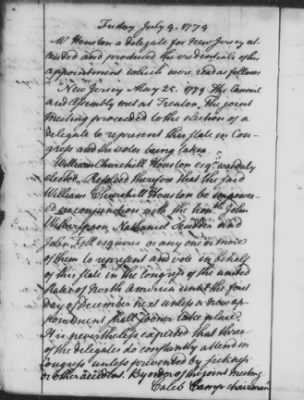 Friday July 9. 1779
Mr Houston a delegate for New Jersey at-
tended and produced the credentials of his
appointment which were read as follows
New Jersey May 25. 1779 The Council
and Assembly met at Trenton. The joint
Meeting proceeded to the election of a
delegate to represent this state in Con-
gress and the votes being taken
William Churchill Houston esqr. was duly
elected. Resolved therefore that the said
William Churchill Houston be impower-
ed in conjunction with the honble John
Witherspoon, Nathaniel Scudder and
John Fell esquires or any one or more
of them to represent and vote in behalf
of this state in the Congress of the united
states of North America until the first
day of December next unless a new ap-
pointment shall sooner take place
It is nevertheless expected that three
of the delegates do constantly attend in
Congress unless prevented by sickness
or other accident. By order of the joint meeting
Caleb Camp chairman